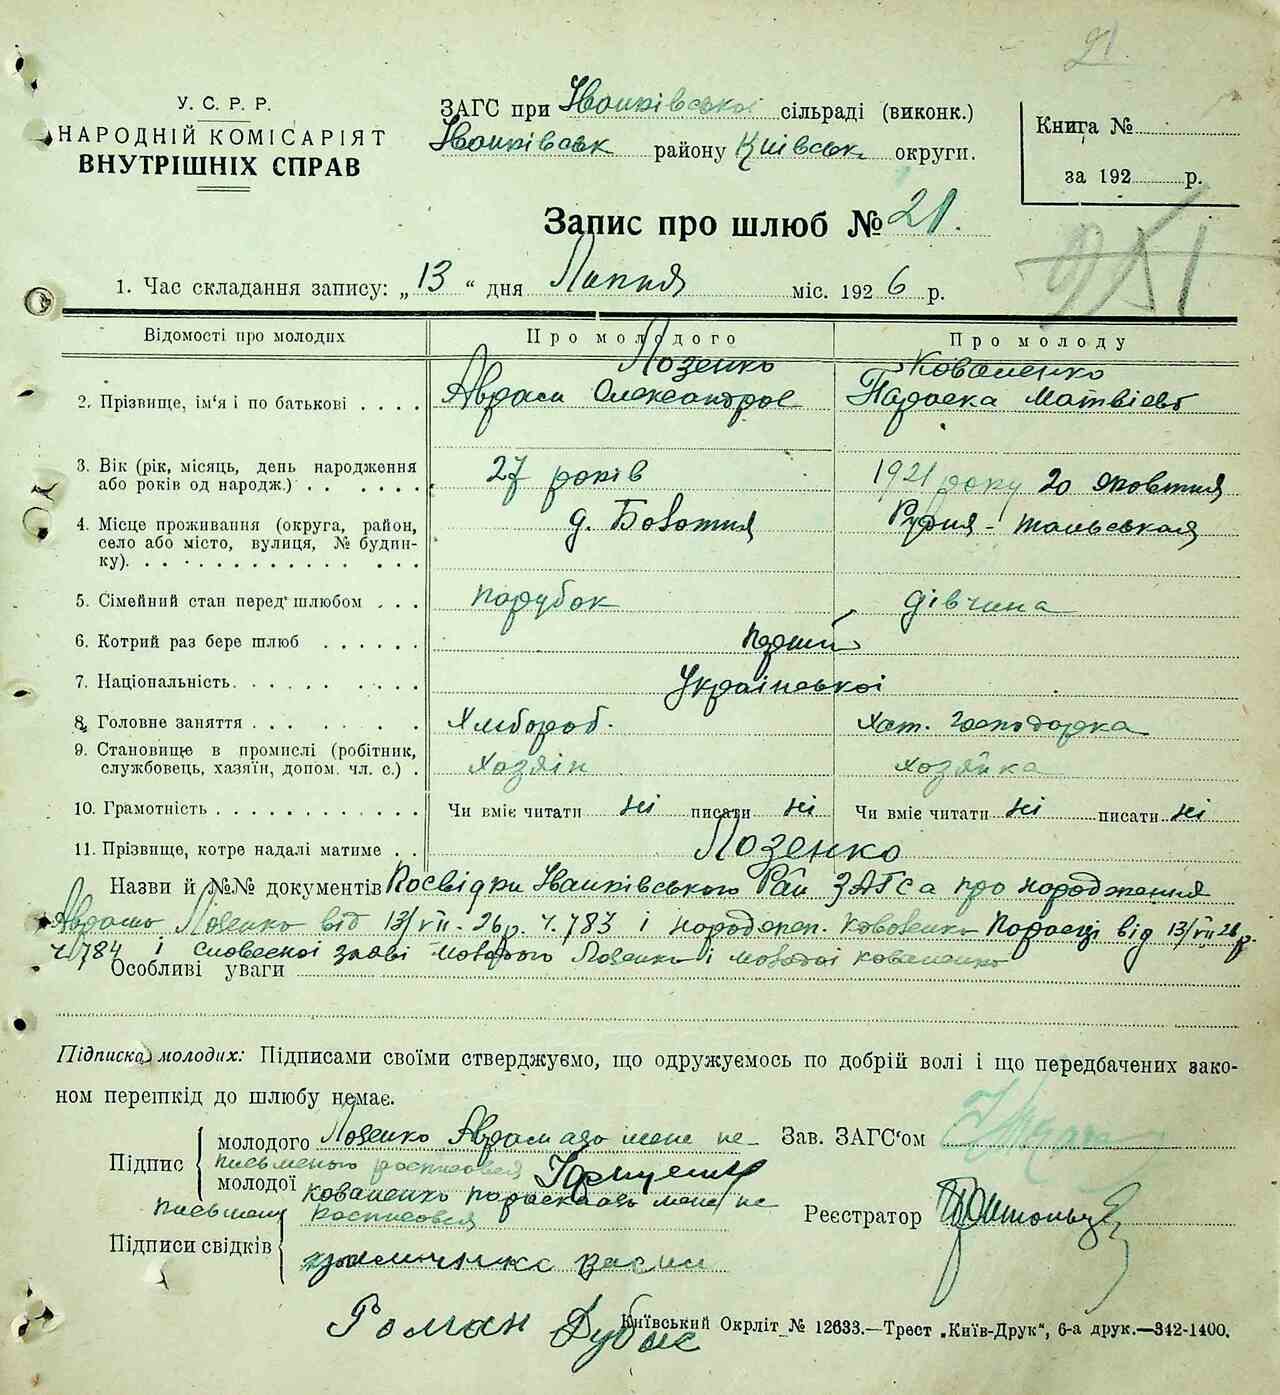 21.
У. С. Р. Р.
НАРОДНІЙ КОМІСАРІЯТ
ВНУТРІШНІХ СПРАВ
ЗАГС при Іванківської сільраді (виконк.)
Іванківськ району Київськ округи.
Книга №
за 192 р.
Запис про шлюб № 21.
951
1. Час складання запису: „13“ дня Липня міс. 1926 р.
Відомості про молодих
Про молодого
Про молоду
2. Прізвище, ім‘я і по батькові . . . .
Лозенко
Авраам Олександров
Коваленко
Параска Матвієв
3. Вік (рік, місяць, день народження
або років од народж.) . . . . . .
27 років
1921 року 20 жовтня
4. Місце проживання (округа, район,
село або місто, вулиця, № будин-
ку). . . . . . . . . . . . . . .
д. Болотня
Рудня-тальськая
5. Сімейний стан перед шлюбом . . .
парубок
дівчина
6. Котрий раз бере шлюб . . . . . .
перший
7. Національність. . . . . . . . . .
Української
8. Головне заняття . . . . . . . . .
Хлібороб.
Хат. господарка
9. Становище в промислі (робітник,
службовець, хазяїн, допом. чл. с.) .
хозяін
хозяйка
10. Грамотність . . . . . . . . . . .
Чи вміє читати ні писати ні
Чи вміє читати ні писати ні
11. Прізвище, котре надалі матиме . .
Лозенко
Назви й №№ документів Посвідки Іванківського Рай ЗАГСа про народження
Авраама Лозенко від 13/VII-26р. ч. 783 і народжен. Коваленко Параски від 13/VII 26р.
ч. 784 і словесної заяві молодого Лозенко і молодої Коваленко
Особливі уваги
Підписка молодих: Підписами своїми стверджуємо, що одружуємось по добрій волі і що передбачених зако-
ном перешкід до шлюбу немає.
Підпис
молодого Лозенко Авраам а за мене не-
письменого росписовся
молодої Коваленко Параска а за мене не
письмену росписовся
Зав. ЗАГС‘ом
Реєстратор
Підписи свідків
Роман Дубик
Київський Окрліт № 12633.—Трест „Київ-Друк“, 6-а друк.—342-1400.